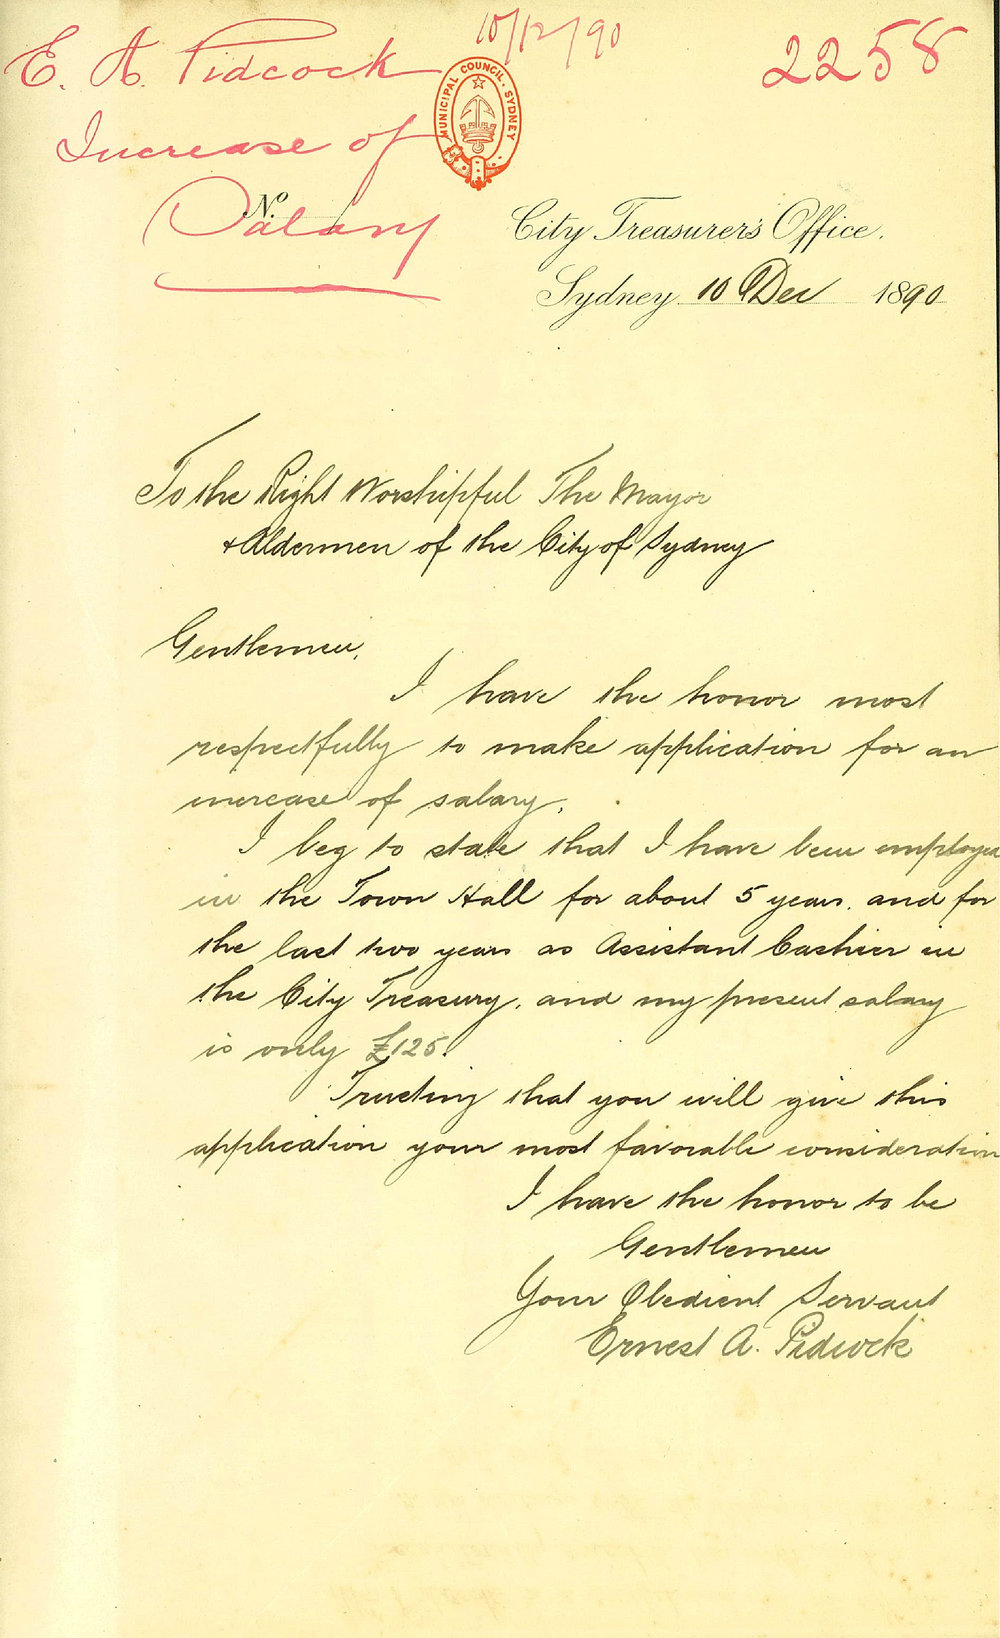 10/12/90
2258
E. A. Pidcock
Increase of
Salary
MUNICIPAL COUNCIL. SYDNEY
No.
City Treasurer's Office.
Sydney 10 Dec 1890
To the Right Worshipful The Mayor
& Aldermen of the City of Sydney
Gentlemen,
I have the honor most
respectfully to make application for an
increase of salary.
I beg to state that I have been employed
in the Town Hall for about 5 years, and for
the last two years as Assistant Cashier in
the City Treasury, and my present salary
is only £125.
Trusting that you will give this
application your most favorable consideration
I have the honor to be
Gentlemen
Your Obedient Servant
Ernest A. Pidcock